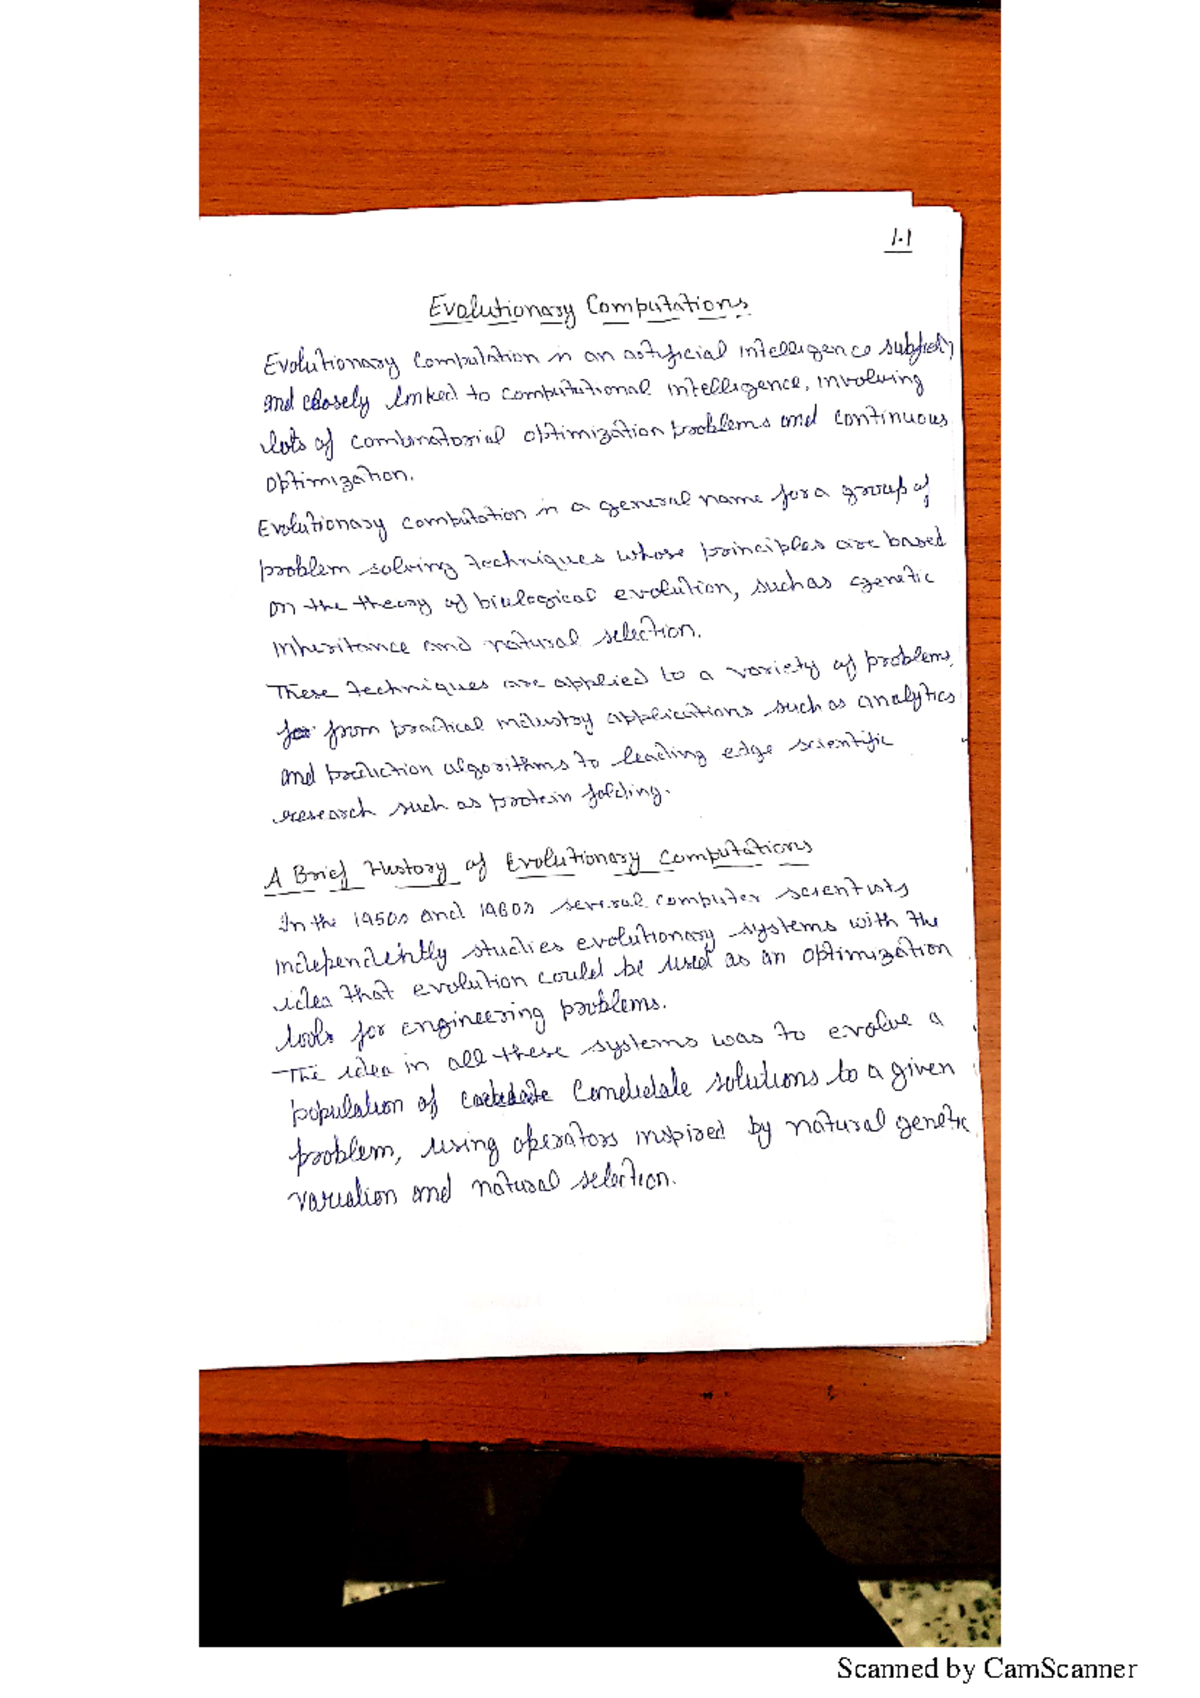 1.1
Evolutionary Computations
Evolutionary Computation is an artificial intelligence subfield
and closely linked to computational intelligence, involving
lots of combinatorial optimization problems and continuous
optimization.
Evolutionary computation is a general name for a group of
problem solving techniques whose principles are based
on the theory of biological evolution, such as genetic
inheritance and natural selection.
These techniques are applied to a variety of problems,
from practical industry applications such as analytics
and prediction algorithms to leading edge scientific
research such as protein folding.
A Brief History of Evolutionary Computations
In the 1950s and 1960s several computer scientists
independently studies evolutionary systems with the
idea that evolution could be used as an optimization
tools for engineering problems.
The idea in all these systems was to evolve a
population of candidate solutions to a given
problem, using operators inspired by natural genetic
variation and natural selection.
Scanned by CamScanner